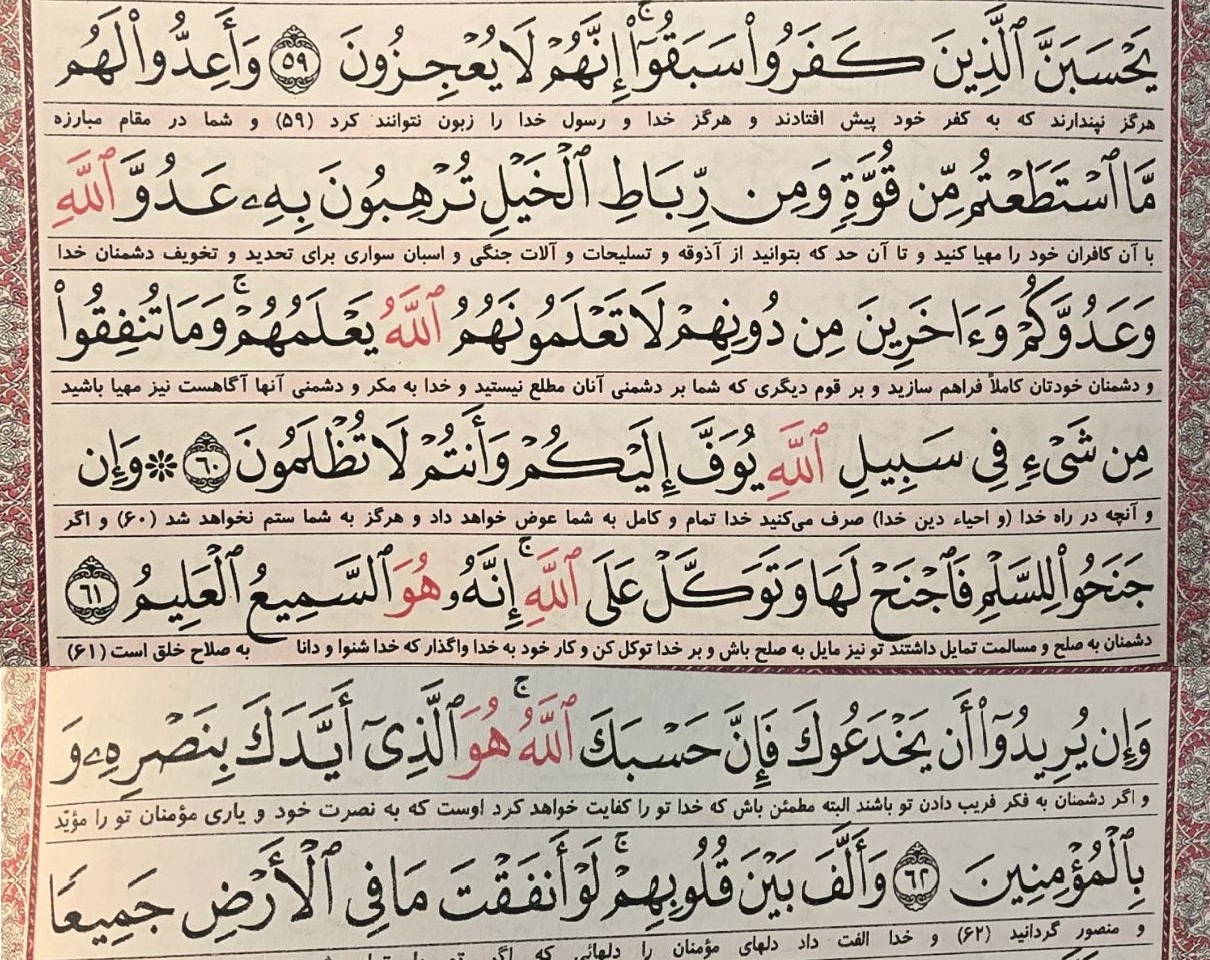 يَحْسَبَنَّ ٱلَّذِينَ كَفَرُوا۟ سَبَقُوٓا۟ ۚ إِنَّهُمْ لَا يُعْجِزُونَ ﴿٥٩﴾ وَأَعِدُّوا۟ لَهُم
هرگز نپندارند که به کفر خود پیش افتادند و هرگز خدا و رسول خدا را زبون نتوانند کرد (۵۹) و شما در مقام مبارزه
مَّا ٱسْتَطَعْتُم مِّن قُوَّةٍ وَمِن رِّبَاطِ ٱلْخَيْلِ تُرْهِبُونَ بِهِۦ عَدُوَّ ٱللَّهِ
با آن کافران خود را مهیا کنید و تا آن حد که بتوانید از آذوقه و تسلیحات و آلات جنگی و اسبان سواری برای تحدید و تخویف دشمنان خدا
وَعَدُوَّكُمْ وَءَاخَرِينَ مِن دُونِهِمْ لَا تَعْلَمُونَهُمُ ٱللَّهُ يَعْلَمُهُمْ ۚ وَمَا تُنفِقُوا۟
و دشمنان خودتان کاملاً فراهم سازید و بر قوم دیگری که شما بر دشمنی آنان مطلع نیستید و خدا به مکر و دشمنی آنها آگاهست نیز مهیا باشید
مِن شَىْءٍ فِى سَبِيلِ ٱللَّهِ يُوَفَّ إِلَيْكُمْ وَأَنتُمْ لَا تُظْلَمُونَ ﴿٦٠﴾ ❊ وَإِن
و آنچه در راه خدا (و احیاء دین خدا) صرف می‌کنید خدا تمام و کامل به شما عوض خواهد داد و هرگز به شما ستم نخواهد شد (۶۰) و اگر
جَنَحُوا۟ لِلسَّلْمِ فَٱجْنَحْ لَهَا وَتَوَكَّلْ عَلَى ٱللَّهِ ۚ إِنَّهُۥ هُوَ ٱلسَّمِيعُ ٱلْعَلِيمُ ﴿٦١﴾
دشمنان به صلح و مسالمت تمایل داشتند تو نیز مایل به صلح باش و بر خدا توکل کن و کار خود به خدا واگذار که خدا شنوا و دانا به صلاح خلق است (۶۱)
وَإِن يُرِيدُوٓا۟ أَن يَخْدَعُوكَ فَإِنَّ حَسْبَكَ ٱللَّهُ ۚ هُوَ ٱلَّذِىٓ أَيَّدَكَ بِنَصْرِهِۦ وَ
و اگر دشمنان به فکر فریب دادن تو باشند البته مطمئن باش که خدا تو را کفایت خواهد کرد اوست که به نصرت خود و یاری مؤمنان تو را مؤیّد
بِٱلْمُؤْمِنِينَ ﴿٦٢﴾ وَأَلَّفَ بَيْنَ قُلُوبِهِمْ ۚ لَوْ أَنفَقْتَ مَا فِى ٱلْأَرْضِ جَمِيعًا
و منصور گردانید (۶۲) و خدا الفت داد دلهای مؤمنان را دلهائی که اگر